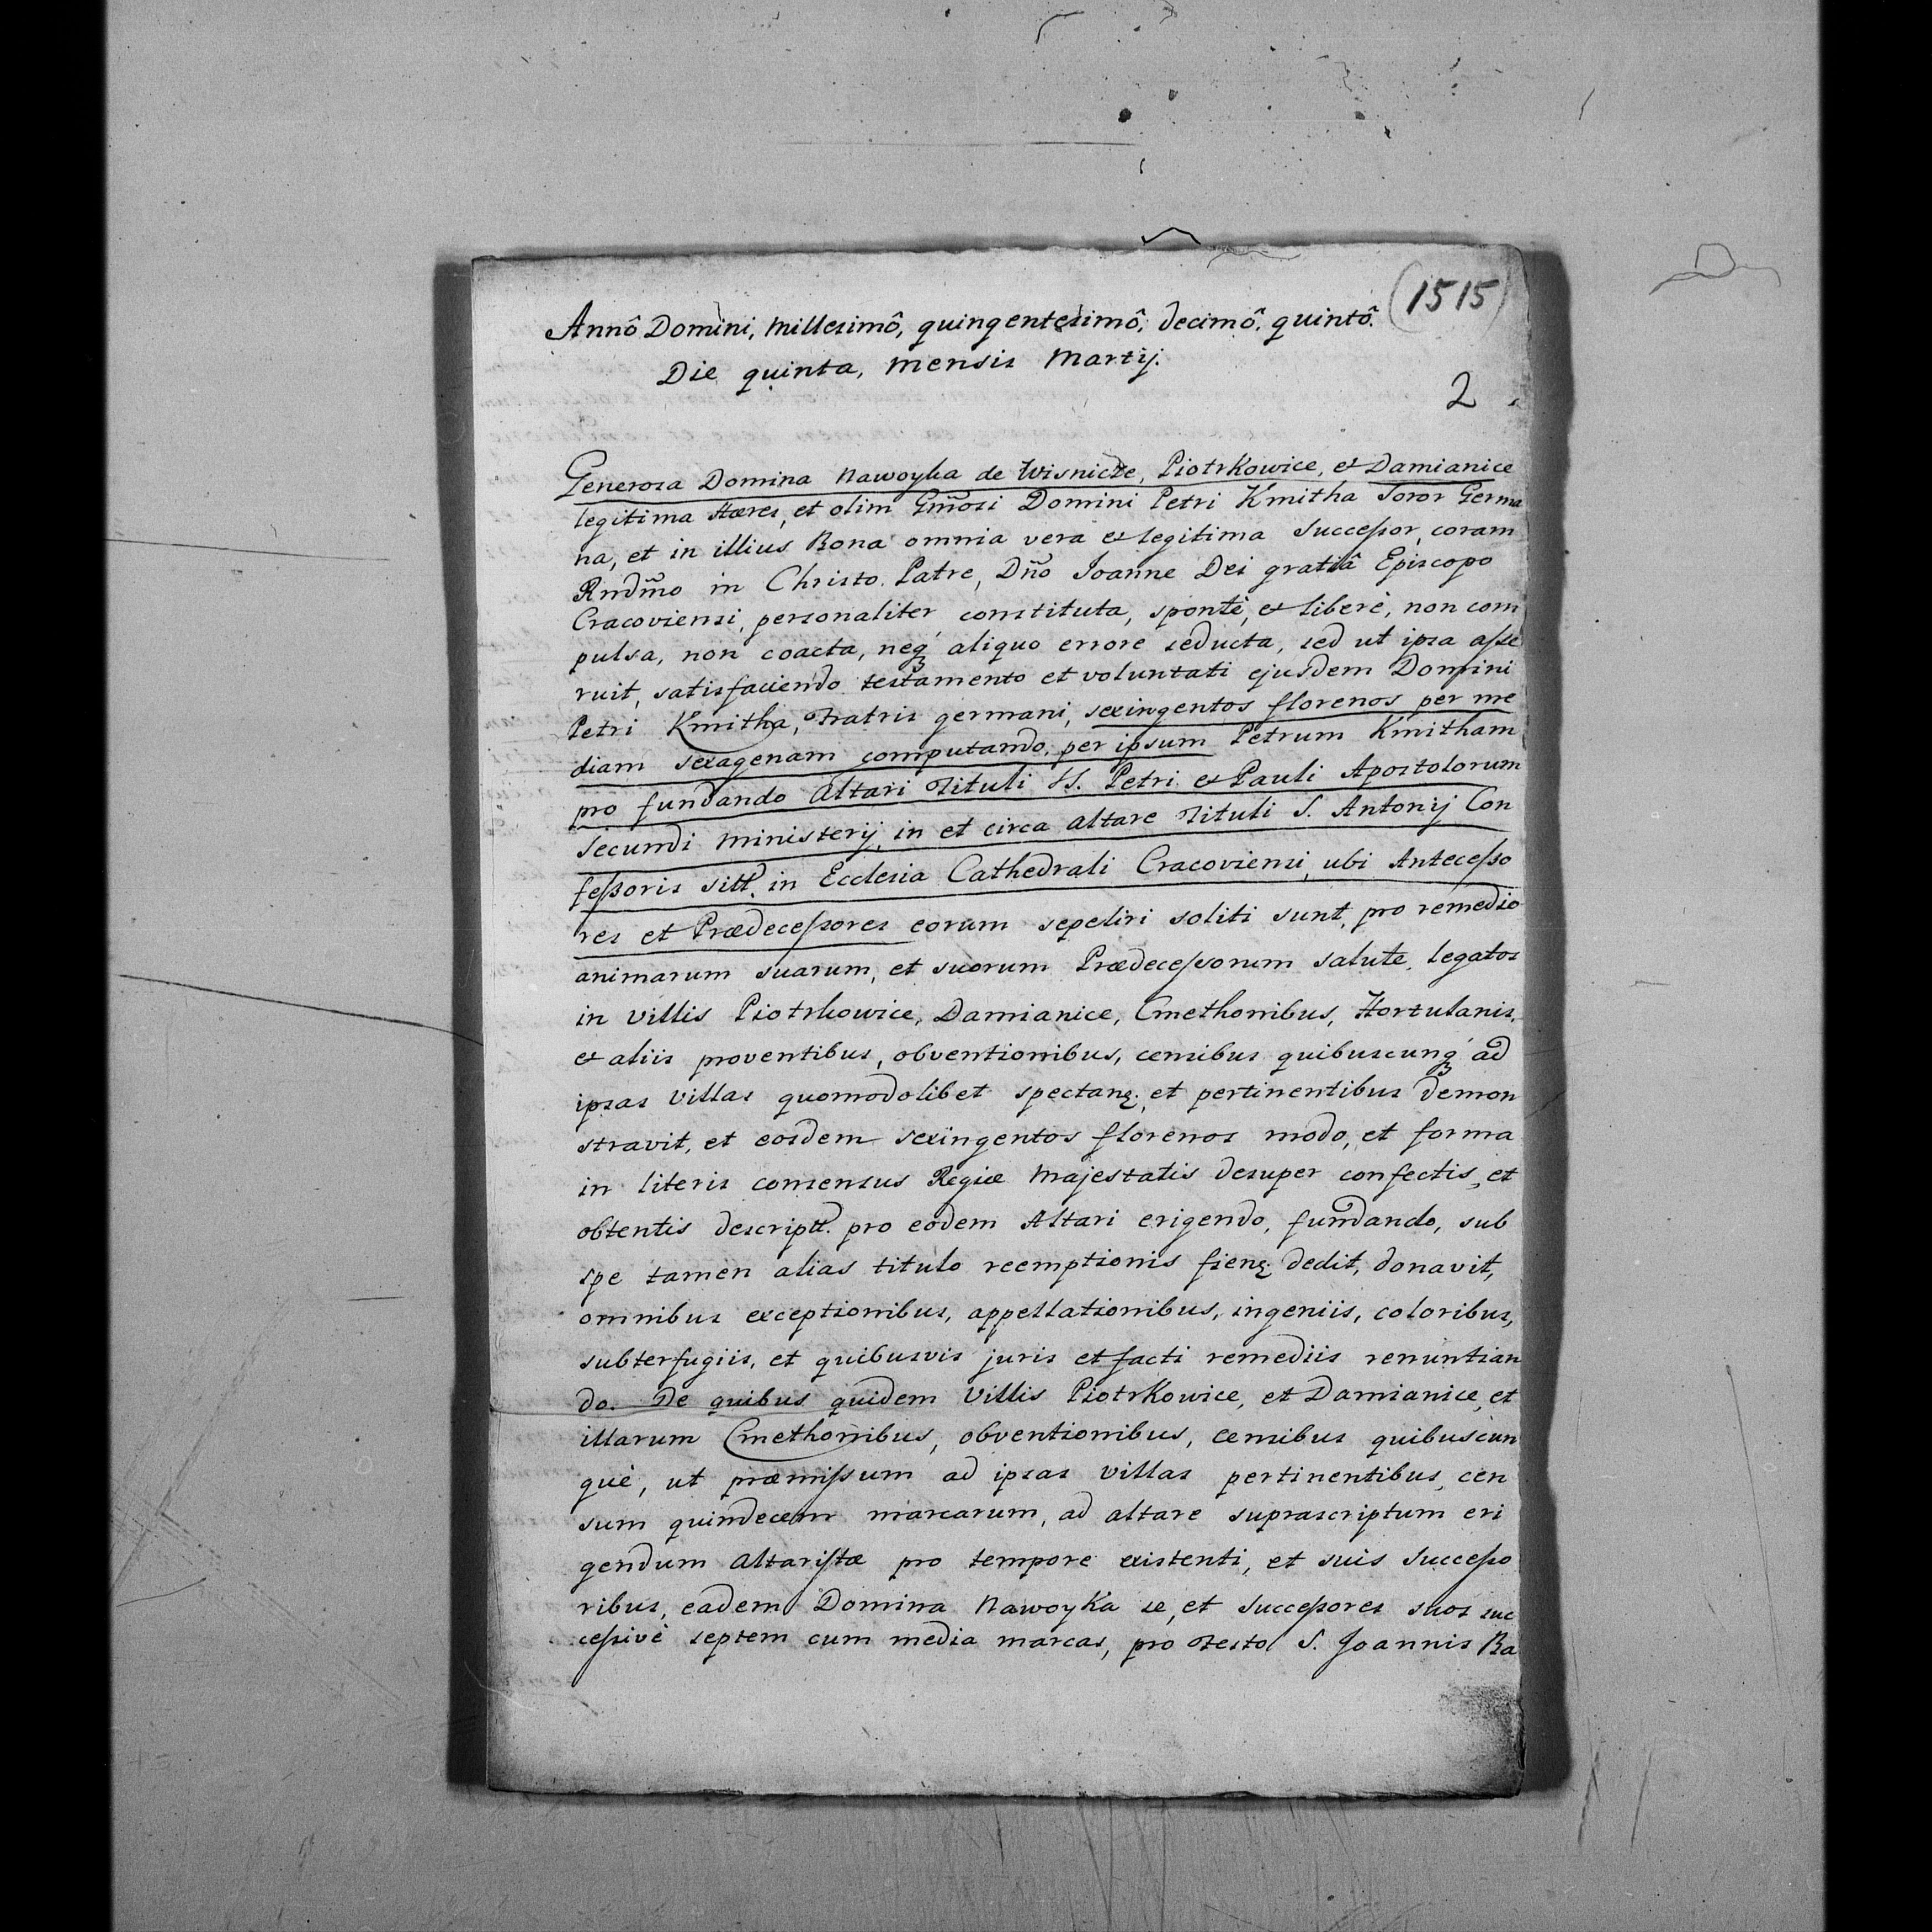 (1515)
Annô Domini, millesimô, quingentesimô, decimô, quintô.
Die quinta, mensis Martij.
2
Generosa Domina Nawoyka de Wisnicze, Piotrkowice, et Damianice
legitima Hæres, et olim Gm̃osi Domini Petri Kmitha Soror Germa
na, et in illius Bona omnia vera et legitima Succeſsor, coram
Rndm̃o in Christo Patre, Dño Joanne Dei gratiâ Episcopo
Cracoviensi, personaliter constituta, spontè, et liberè, non com
pulsa, non coacta, neqꝫ aliquo errore seducta, sed ut ipsa aſse
ruit, satisfaciendo testamento et voluntati ejusdem Domini
Petri Kmitha, Fratris germani, sexingentos florenos per me
diam sexagenam computando, per ipsum Petrum Kmitham
pro fundando Altari Tituli SS. Petri et Pauli Apostolorum
Secundi Ministerij, in et circa Altare Tituli S. Antonij Con
feſsoris sitt. in Ecclesia Cathedrali Cracoviensi, ubi Anteceſso
res et Prædeceſsores eorum sepeliri soliti sunt, pro remedio
animarum suarum, et suorum Prædeceſsorum salute, legatos
in Villis Piotrkowice, Damianice, Cmethonibus, Hortulanis,
et aliis proventibus, obventionibus, censibus quibuscunqꝫ ad
ipsas Villas quomodolibet spectanꝫ, et pertinentibus demon
stravit, et eosdem sexingentos florenos modo, et forma
in literis consensus Regiæ Majestatis desuper confectis, et
obtentis descriptt. pro eodem Altari erigendo, fundando, sub
spe tamen alias titulo reemptionis fienꝫ dedit, donavit,
omnibus exceptionibus, appellationibus, ingeniis, coloribus,
subterfugiis, et quibusvis juris et facti remediis renuntian
do. De quibus quidem Villis Piotrkowice, et Damianice, et
illarum Cmethonibus, obventionibus, censibus quibuscun
què, ut præmiſsum ad ipsas Villas pertinentibus, cen
sum quindecem marcarum, ad altare suprascriptum eri
gendum Altariſtæ pro tempore existenti, et suis Succeſso
ribus, eadem Domina Nawoyka se, et Succeſsores suos suc
ceſsivè septem cum media marcas, pro Festo S. Joannis Ba